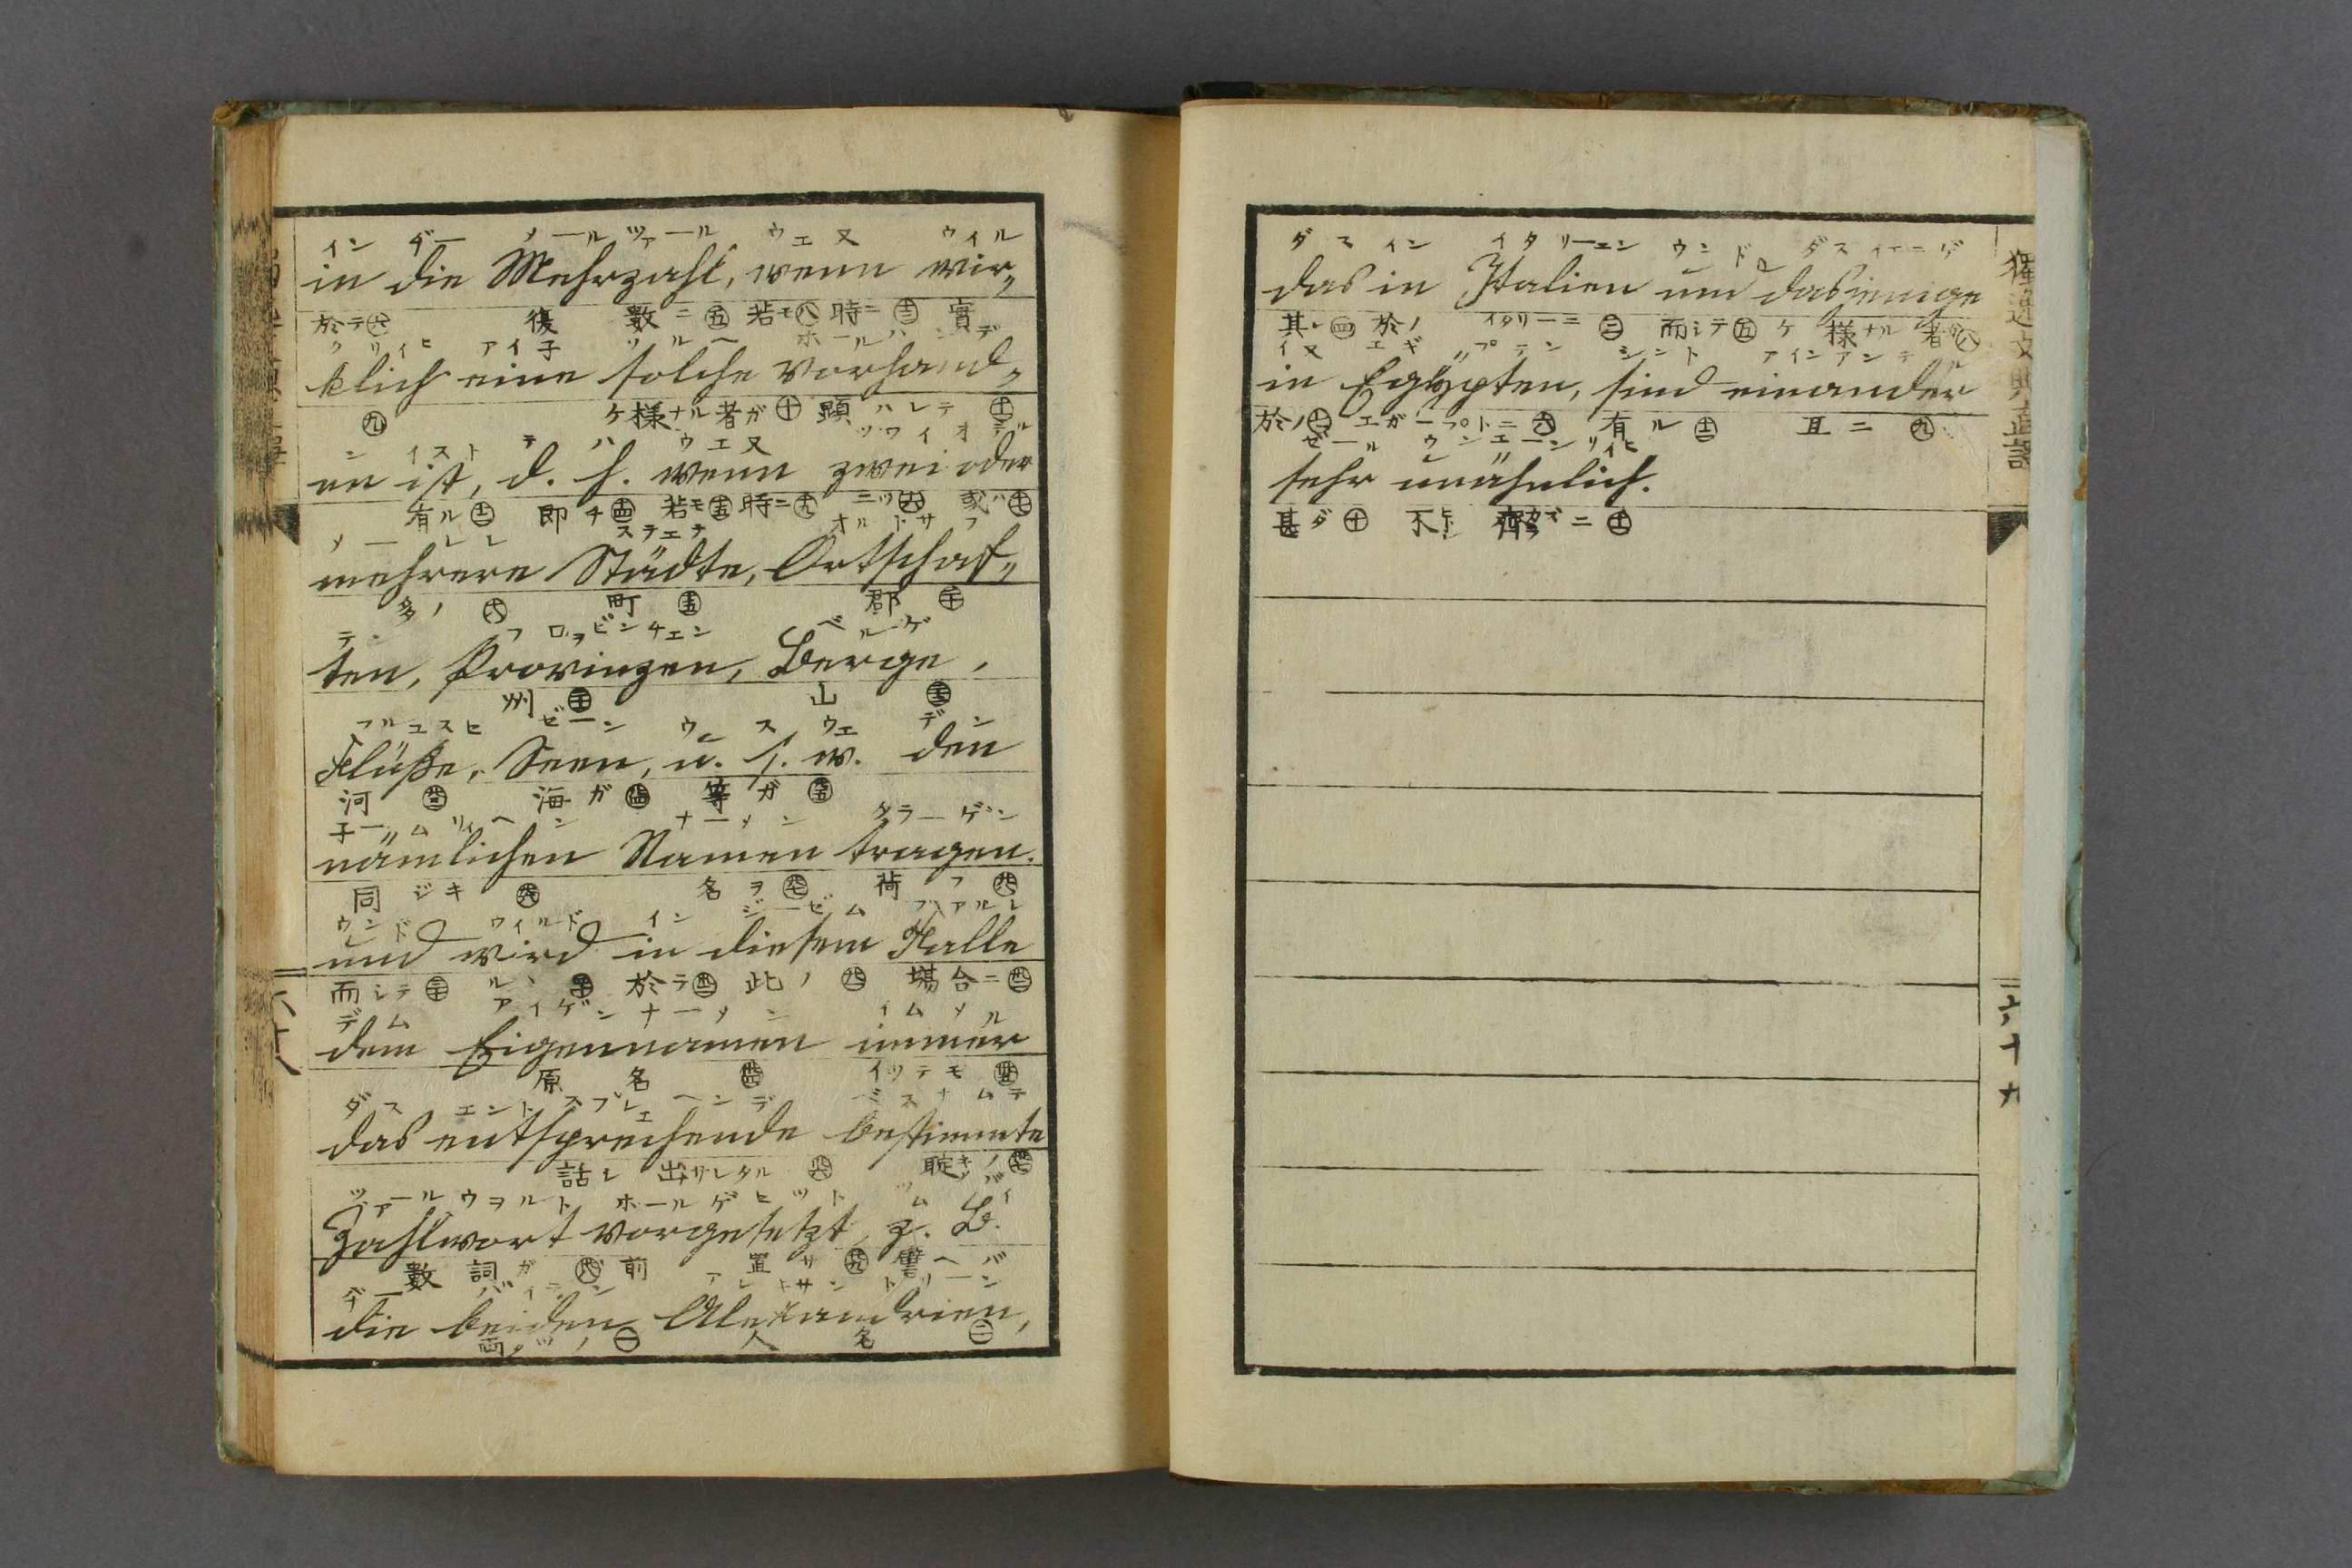 イン ダー メールツァール ウエヌ ウィル
in die Mehrzahl, wenn wir„
於テ㊅ 復 数ニ㊄ 若モ㊇ 時ニ 實
クリイヒ アイ子 ソルヘ ホールハンデ
klich eine solche vorhand„
㊈ ケ様ナル者ガ㊉ 顕ハレテ
ン イスト デ ハ ウエヌ ツワイ オデル
en ist, d. h. wenn zwei oder
有ル 即チ 若モ 時ニ 二ツ 或ハ
メーレレ ステエテ オルトサフ
mehrere Städte, Ortschaf„
多ノ 町 郡
テン プロヲビンチエン ベルゲ
ten, Provinzen, Berge,
州 山
フルユスヒ ゼーン ウ ス ウエ デン
Flüße, Seen, u. s. w. den
河 海ガ 等ガ
子ームリイヘン ナーメン タラーゲン
nämlichen Namen tragen.
同ジキ 名ヲ 荷フ
ウンド ウイルド イン ジーゼム フハアルレ
und wird in diesem Falle
而シテ ル丶 於テ 此ノ 場合ニ
デム アイゲンナーメン イムメル
dem Eigennamen immer
原名 イツテモ
ダス エントスプレエヘンデ ベスチムテ
das entsprechende bestimmte
話シ出サレタル 聢キノ
ツァールウヲルト ホールゲヒツト ツム バイ
Zahlwort vorgesetzt, z. B.
数詞ガ 前 置サ 譬ヘバ
ヂー バイデン アレキサンドリーン
die beiden Alexandrien,
両ツノ㊀ 人名㊁
六十八
獨逸文典直訳
ダス イン イタリーエン ウンド ダスイエニゲ
das in Italien und dasjenige
其レ㊃ 於ノ イタリーニ㊂ 而シテ㊄ ケ様ナル者㊇
イヌ エギプテン シント アインアンデル
in Egypten, sind einander
於ノ㊆ エガープトニ㊅ 有ル 互ニ㊈
ゼール ウンエーンリイヒ
sehr unähnlich.
甚ダ㊉ 不 齊ニ
六十九